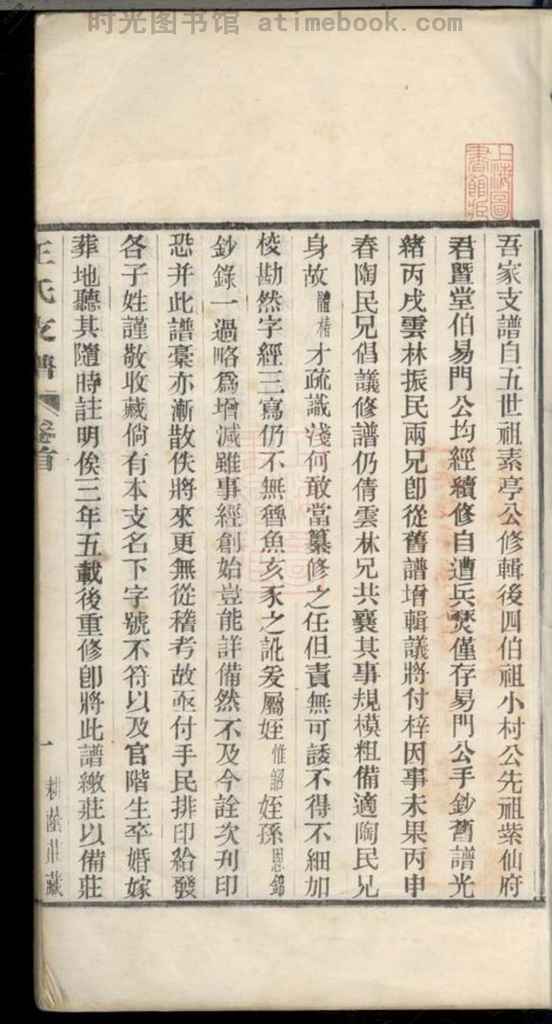 时光图书馆 atimebook.com
上海圖書館藏
吾家支譜自五世祖素亭公修輯後四伯祖小村公先祖紫仙府
君暨堂伯易門公均經續修自遭兵燹僅存易門公手鈔舊譜光
緒丙戌雲林振民兩兄卽從舊譜增輯議將付梓因事未果丙申
春陶民兄倡議修譜仍倩雲林兄共襄其事規模粗備適陶民兄
身故體椿才疏識淺何敢當纂修之任但責無可諉不得不細加
校勘然字經三寫仍不無魯魚亥豕之訛爰屬姪惟韶姪孫恩錦
鈔錄一過略爲增減雖事經創始豈能詳備然不及今詮次刋印
恐并此譜稾亦漸散佚將來更無從稽考故亟付手民排印給發
各子姓謹敬收藏倘有本支名下字號不符以及官階生卒婚嫁
葬地聽其隨時註明俟三年五載後重修卽將此譜繳莊以備莊
王氏支譜 卷首 一 耕蔭莊藏